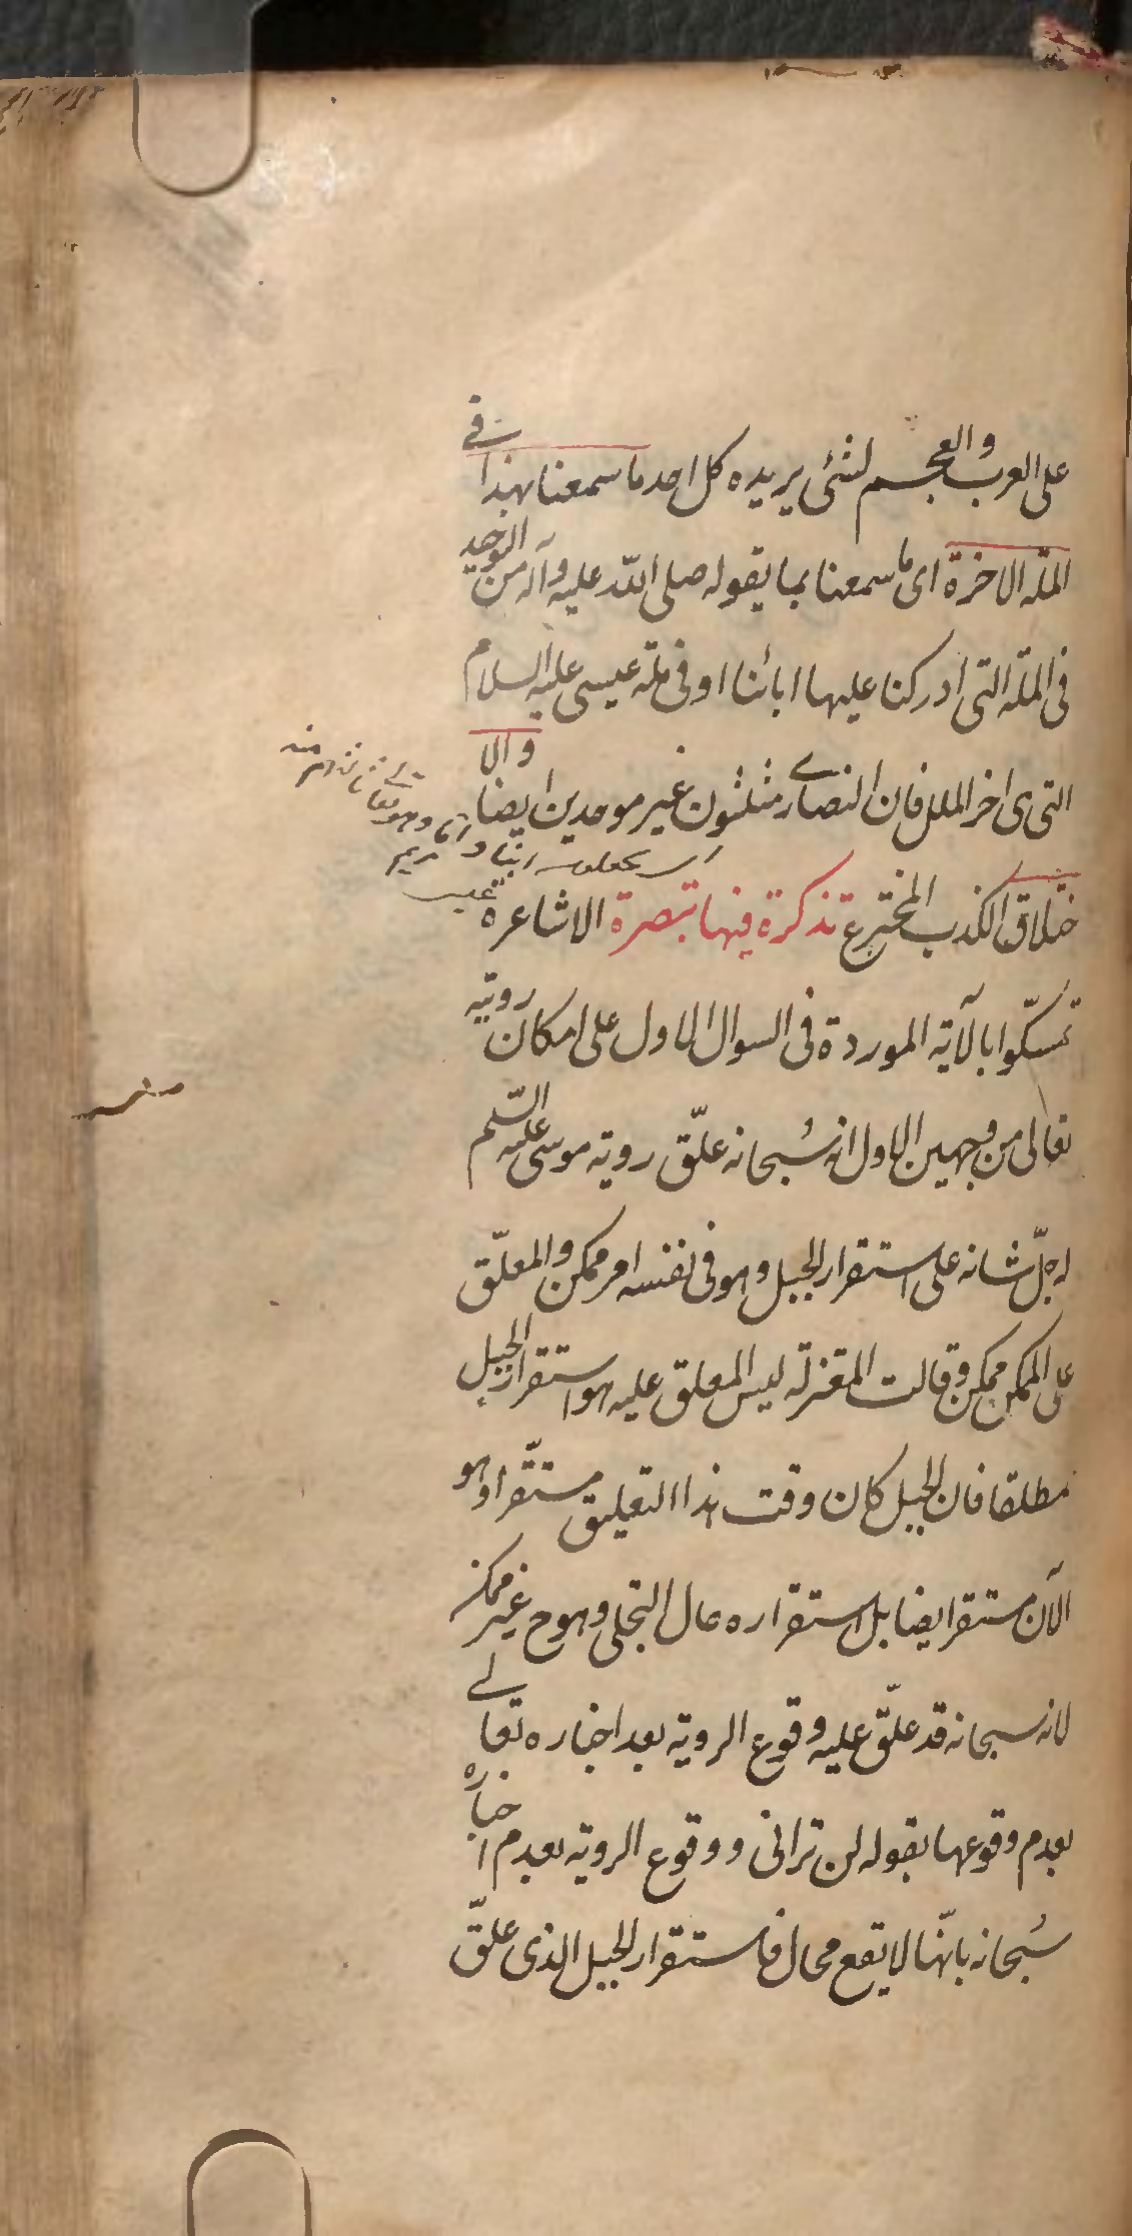 على العرب والعجم لشئ يريده كل احد ما سمعنا بهذا في
الملة الاخرة اى ما سمعنا بما يقوله صلى الله عليه وآله من التوحيد
فى الملة التى ادركنا عليها ابائنا او فى ملة عيسى عليه السلام
التى هى اخر الملل فان النصارى مثلثون غير موحدين ايضا و الا
ختلاق الكذب المخترع تذكرة فيها تبصرة الاشاعرة
تمسكوا بالآية الموردة فى السوال الاول على امكان رويته
تعالى من وجهين الاول انه سبحانه علّق روية موسى عليه السّلم
له جلّ شانه على استقرار الجبل وهو فى نفسه امر ممكن والمعلّق
على الممكن ممكن وقالت المعتزلة ليس المعلق عليه هو استقرار الجبل
مطلقا فان الجبل كان وقت هذا التعليق مستقّرا وهو
الآن مستقر ايضا بل استقراره حال التجلى وهو ح غير ممكن
لانه سبحانه قد علّق عليه وقوع الروية بعد اخباره تعالى
بعدم وقوعها بقوله لن ترانى و وقوع الروية بعدم اخباره
سُبحانه بانّها لا يقع محال فاستقرار الجبل الذى علّق
اى يجعلون ابنا و اما وهو تعالى ثالثهم منه
عيسى مريم